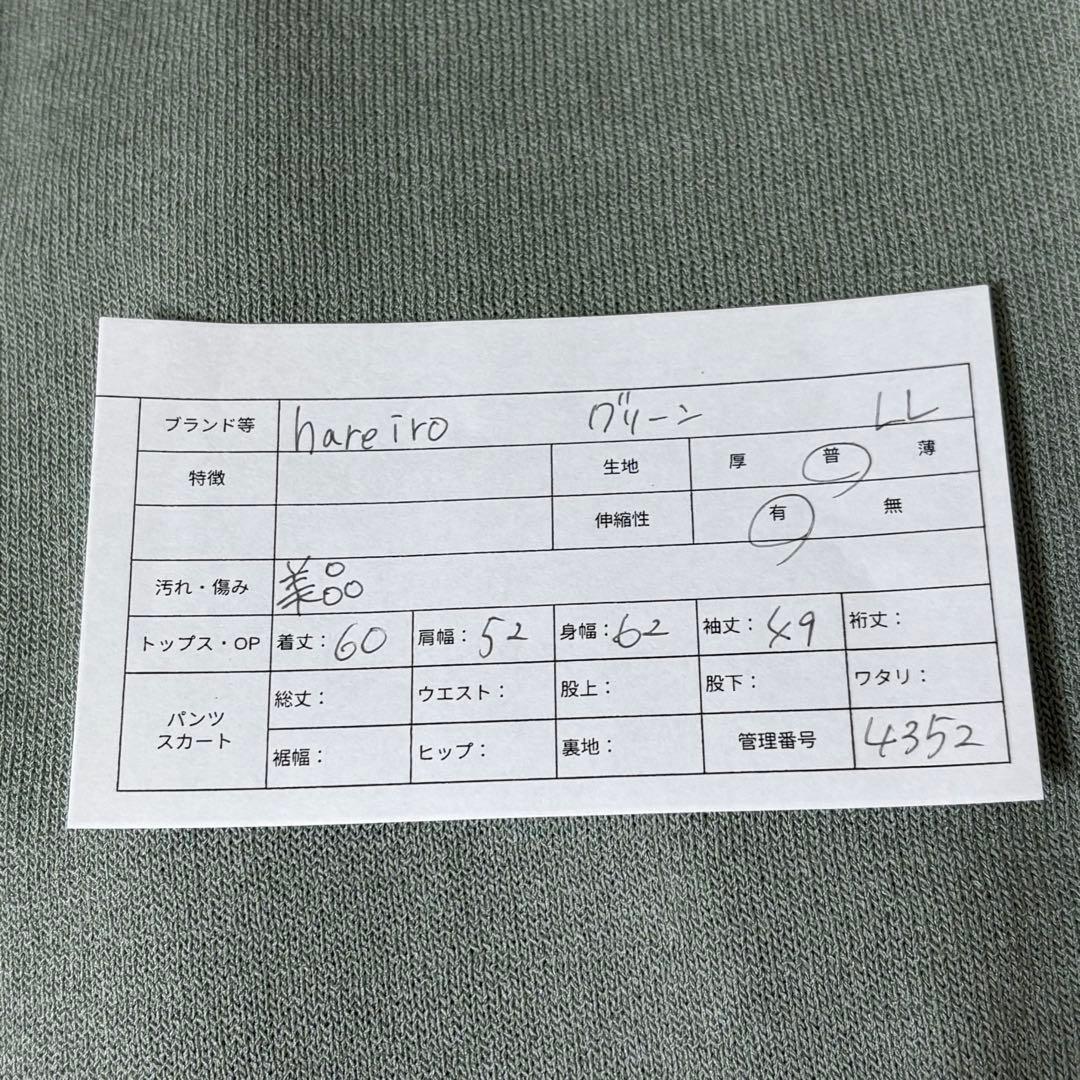 ブランド等 hareiro グリーン LL
特徴 生地 厚 普 薄
伸縮性 有 無
汚れ・傷み 美品
トップス・OP 着丈：60 肩幅：52 身幅：62 袖丈：49 裄丈：
パンツ
スカート
総丈： ウエスト： 股上： 股下： ワタリ：
裾幅： ヒップ： 裏地： 管理番号 4352